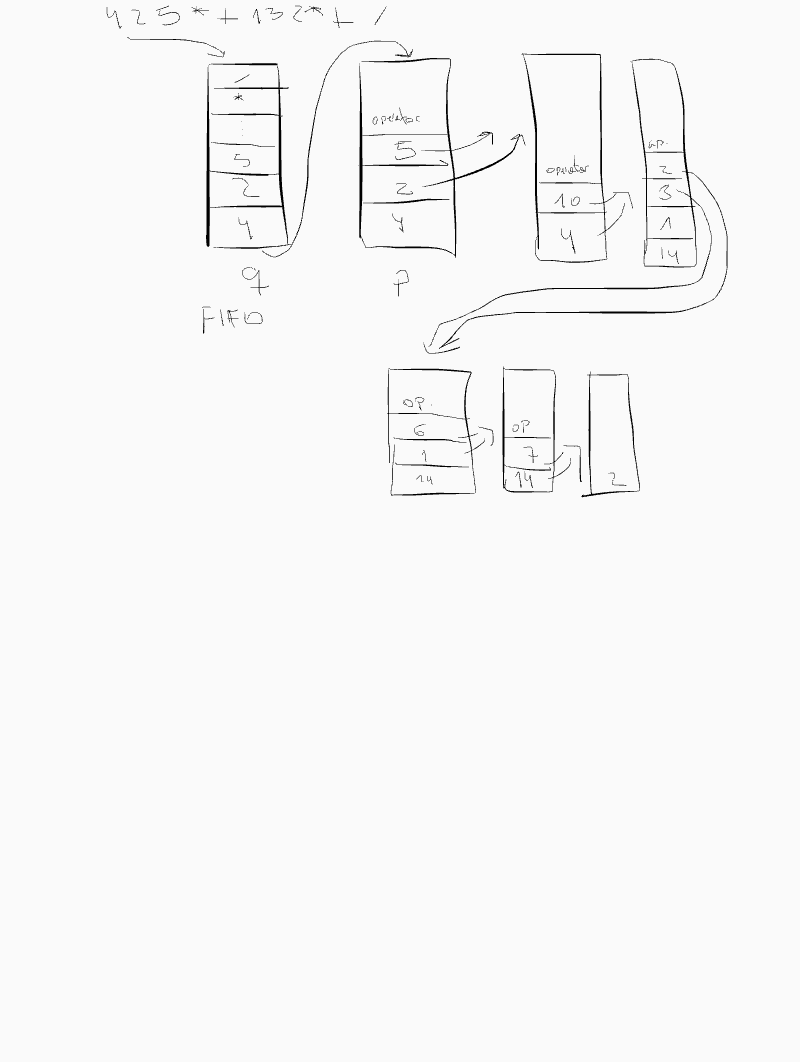 4 2 5 * + 1 3 2 * + /
/
*
:
5
2
4
q
FIFO
operator
5
2
4
P
operator
10
4
op.
2
3
1
14
op.
6
1
14
op
7
14
2